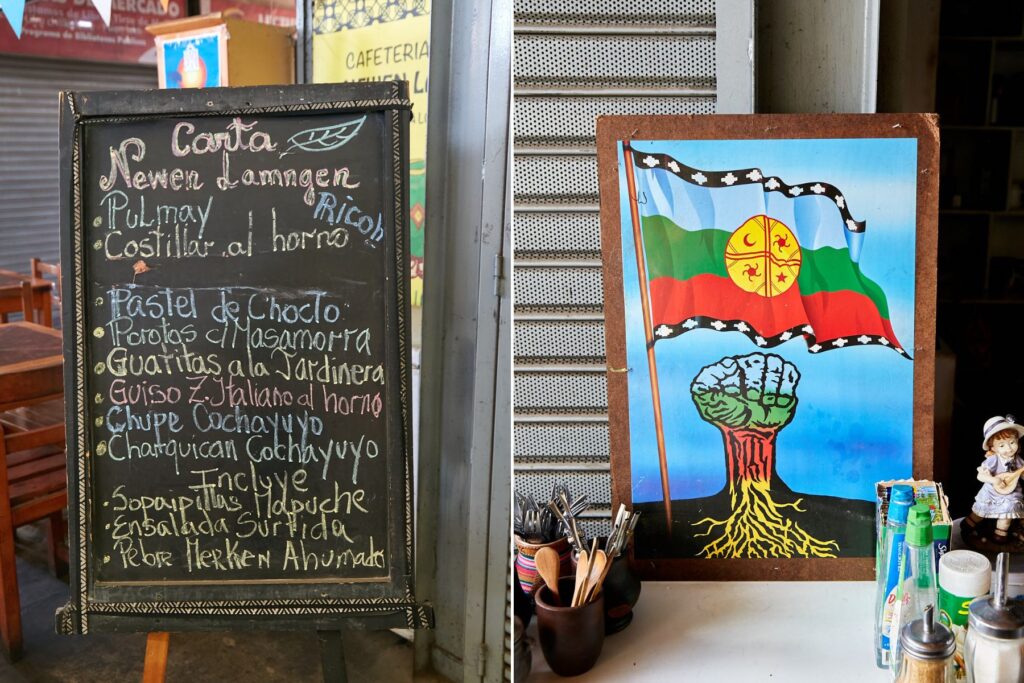 DE MERCADO
CAFETERIA
NEWEN L
Carta
Newen Lamngen
Rico!!
• Pulmay
• Costillar al horno
• Pastel de Chocto
• Porotos c/Masamorra
• Guatitas a la Jardinera
• Guiso Z. Italiano al horno
• Chupe Cochayuyo
• Charquican Cochayuyo
Incluye
• Sopaipillas Mapuche
• Ensalada Surtida
• Pebre Merken Ahumado